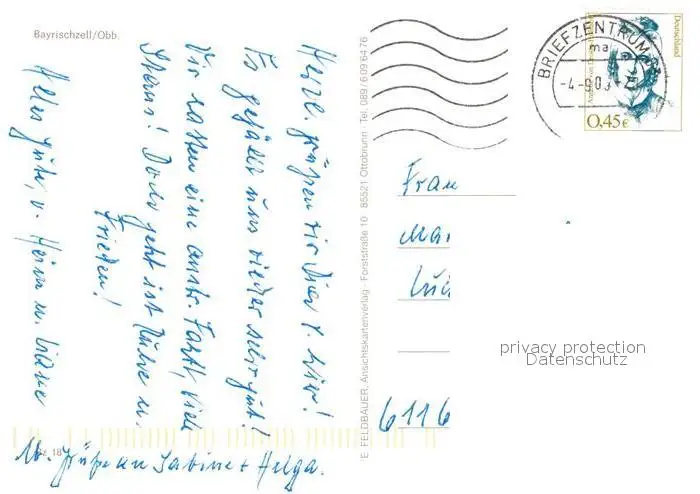 Bayrischzell/Obb.
Herzl. Grüßen wir Dich v. hier!
Es gefällt uns wieder sehr gut!
Wir hatten eine anstr. Fahrt, viele
Staus! Doch jetzt ist Ruhe u.
Frieden!
Alles Gute, v. Heinz u.
Grüße an Sabine + Helga.
E. FELDBAUER, Ansichtskartenverlag · Forststraße 10 · 85521 Ottobrunn · Tel. 089/6 09 64 76
BRIEFZENTRUM
ma
-4.-9.03
Deutschland
0,45€
Frau
Mar
6116
privacy protection
Datenschutz